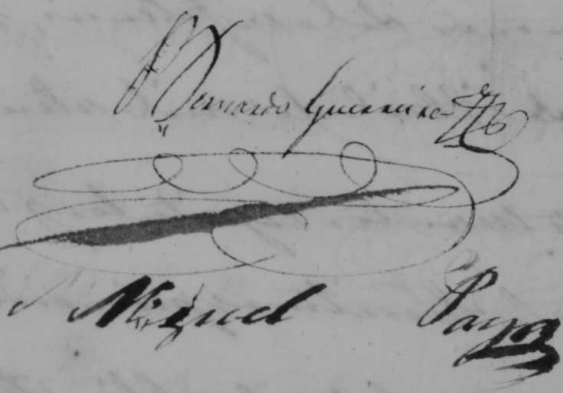 Bernardo Guerrero
Miguel Paya